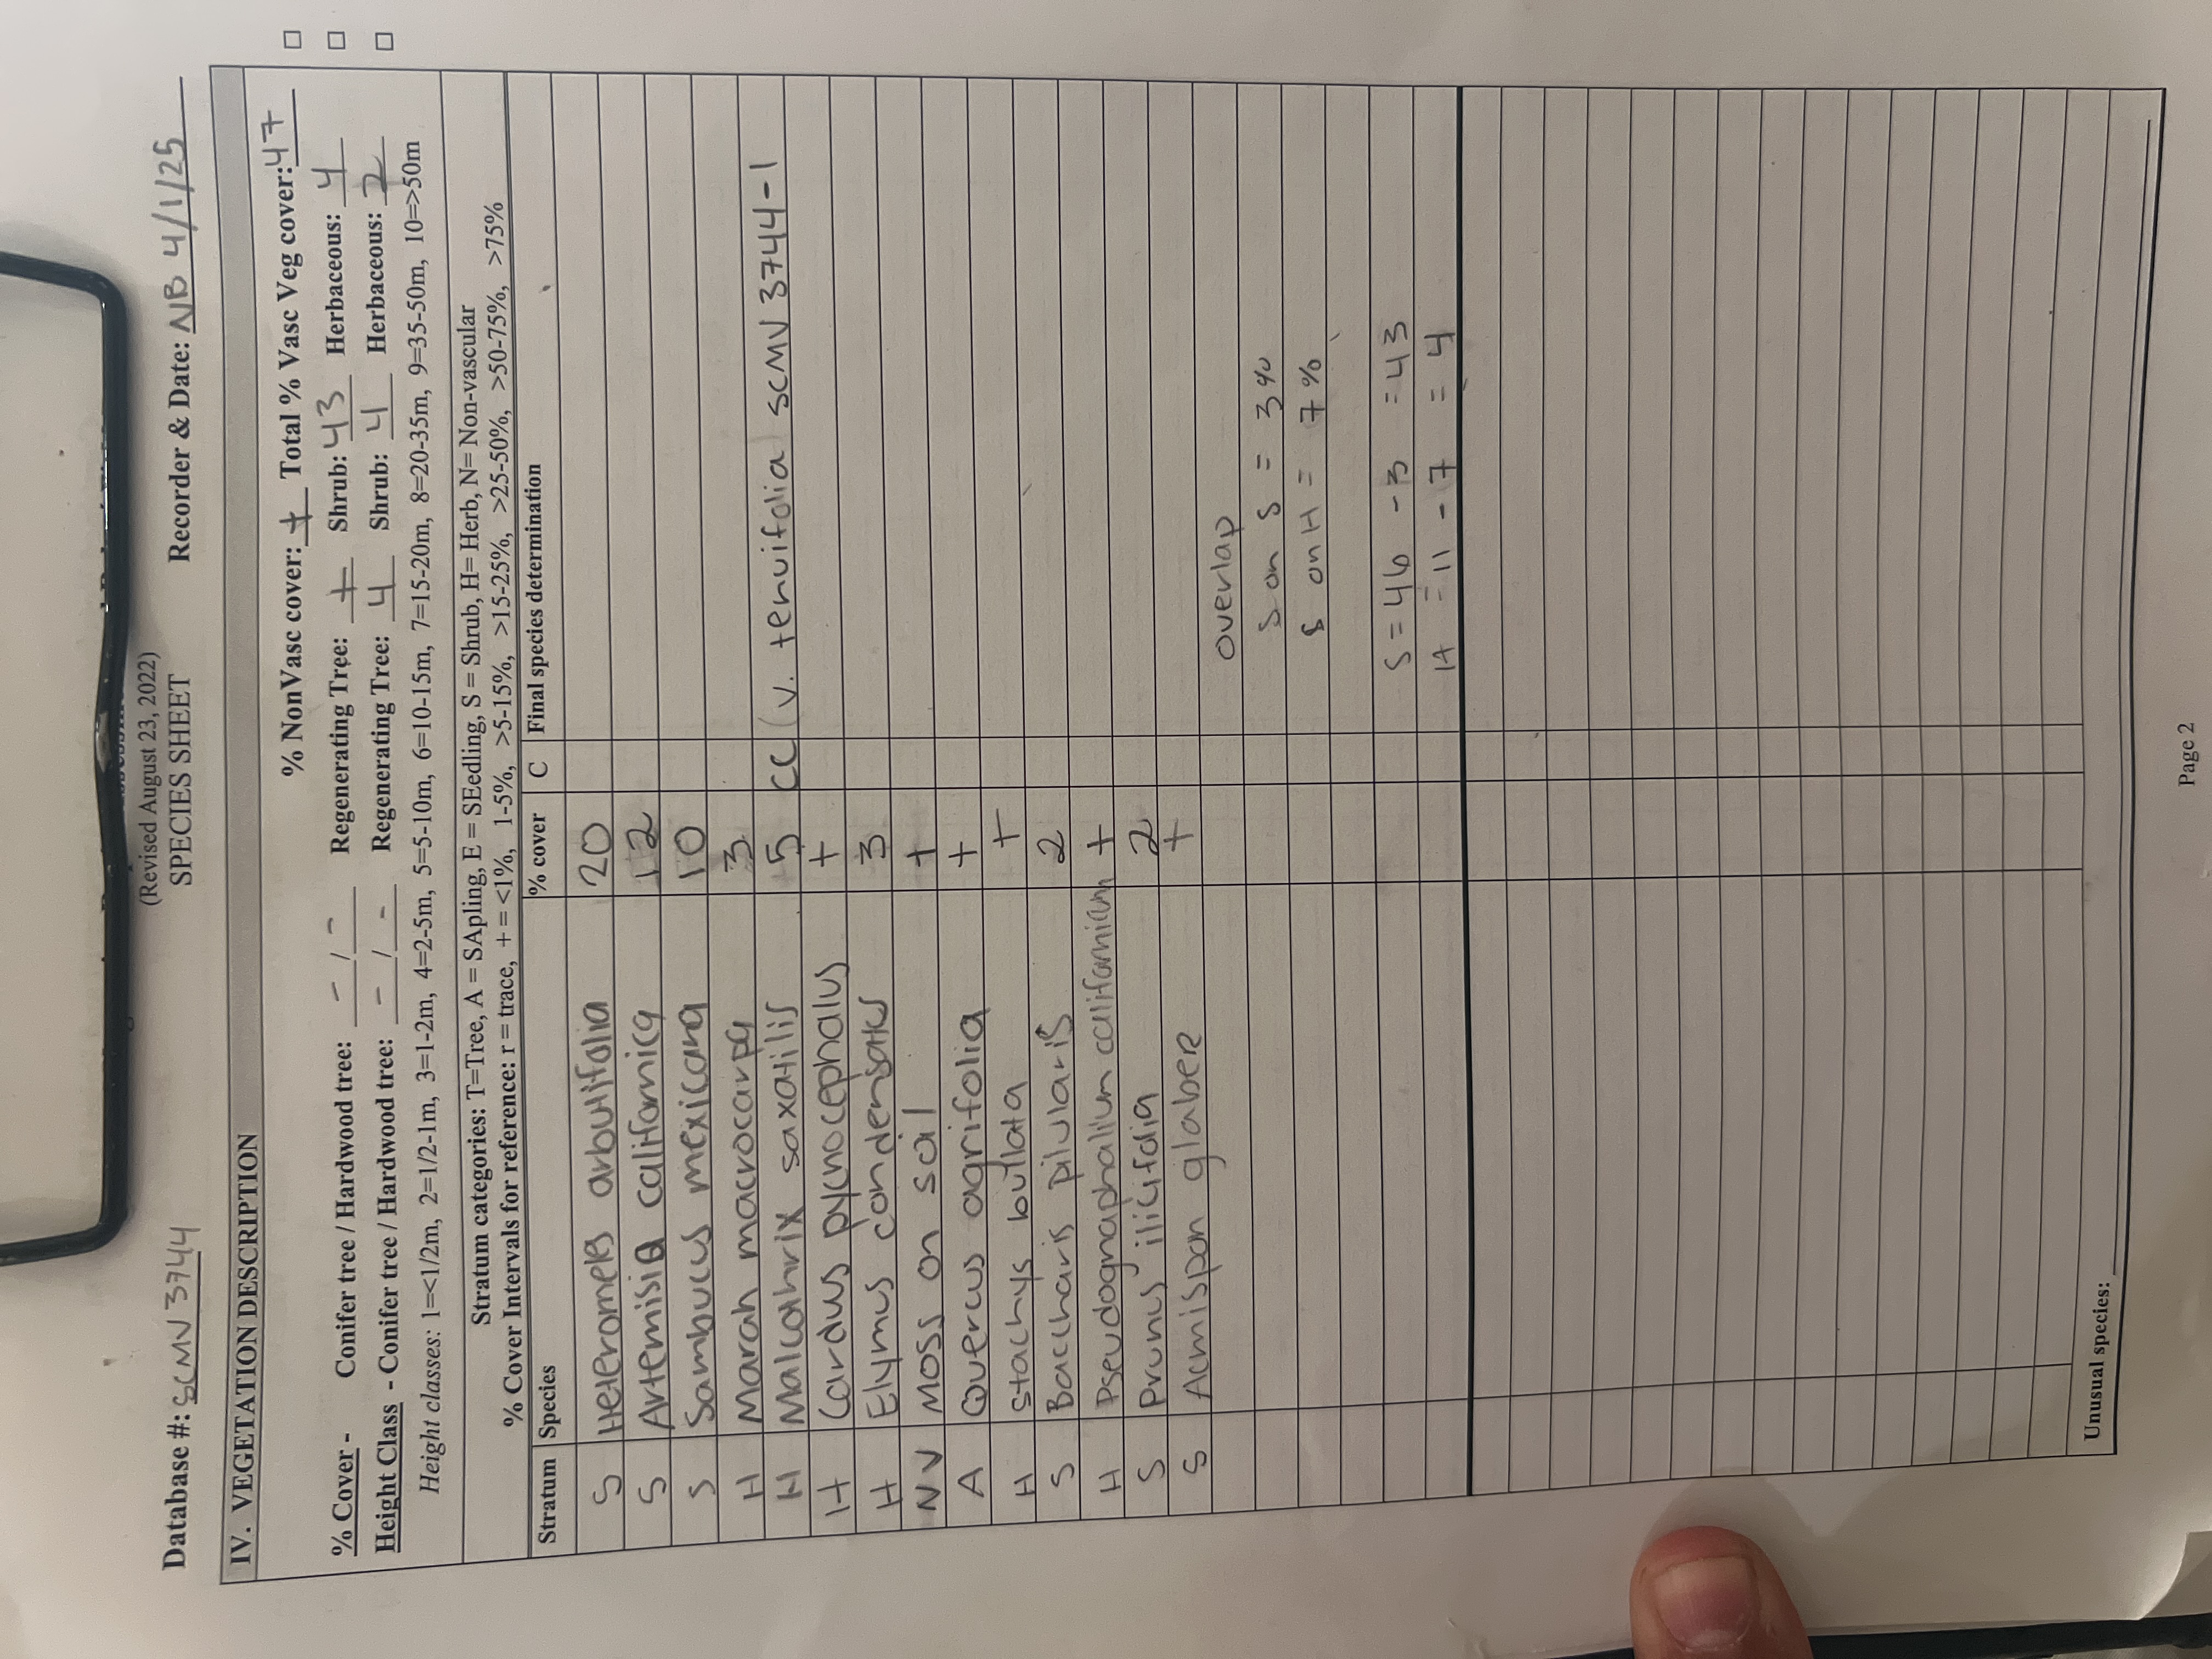 (Revised August 23, 2022)
SPECIES SHEET
Database #: SCMV 3744 Recorder & Date: NB 4/1/25
IV. VEGETATION DESCRIPTION
% NonVasc cover: + Total % Vasc Veg cover: 47
% Cover - Conifer tree / Hardwood tree: - / - Regenerating Tree: + Shrub: 43 Herbaceous: 4
Height Class - Conifer tree / Hardwood tree: - / - Regenerating Tree: 4 Shrub: 4 Herbaceous: 2
Height classes: 1=<1/2m, 2=1/2-1m, 3=1-2m, 4=2-5m, 5=5-10m, 6=10-15m, 7=15-20m, 8=20-35m, 9=35-50m, 10=>50m
Stratum categories: T=Tree, A = SApling, E = SEedling, S = Shrub, H= Herb, N= Non-vascular
% Cover Intervals for reference: r = trace, + = <1%, 1-5%, >5-15%, >15-25%, >25-50%, >50-75%, >75%
Stratum Species % cover C Final species determination
S Heteromeles arbutifolia 20
S Artemisia californica 12
S Sambucus mexicana 10
H Marah macrocarpa 3
H Malcothrix saxatilis 5 CC (v. tenuifolia) SCMV 3744-1
H Carduus pycnocephalus +
H Elymus condensatus 3
NV Moss on soil +
A Quercus agrifolia +
H Stachys bullata +
S Baccharis pilularis 2
H Pseudognaphalium californicum +
S Prunus ilicifolia 2
S Acmispon glaber +
overlap
S on S = 3%
S on H = 7%
S = 46 - 3 = 43
H = 11 - 7 = 4
Unusual species:
Page 2